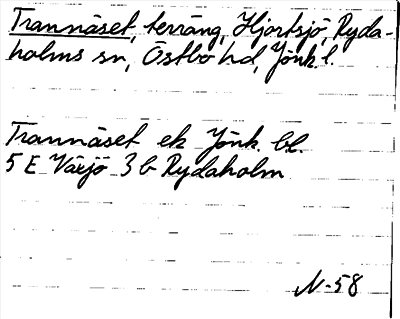 Trannäset, terräng, Hjortsjö, Ryda-
holms sn, Östbo hd, Jönk. l.
Trannäset ek Jönk. bl.
5 E Växjö 3 b Rydaholm
N-58